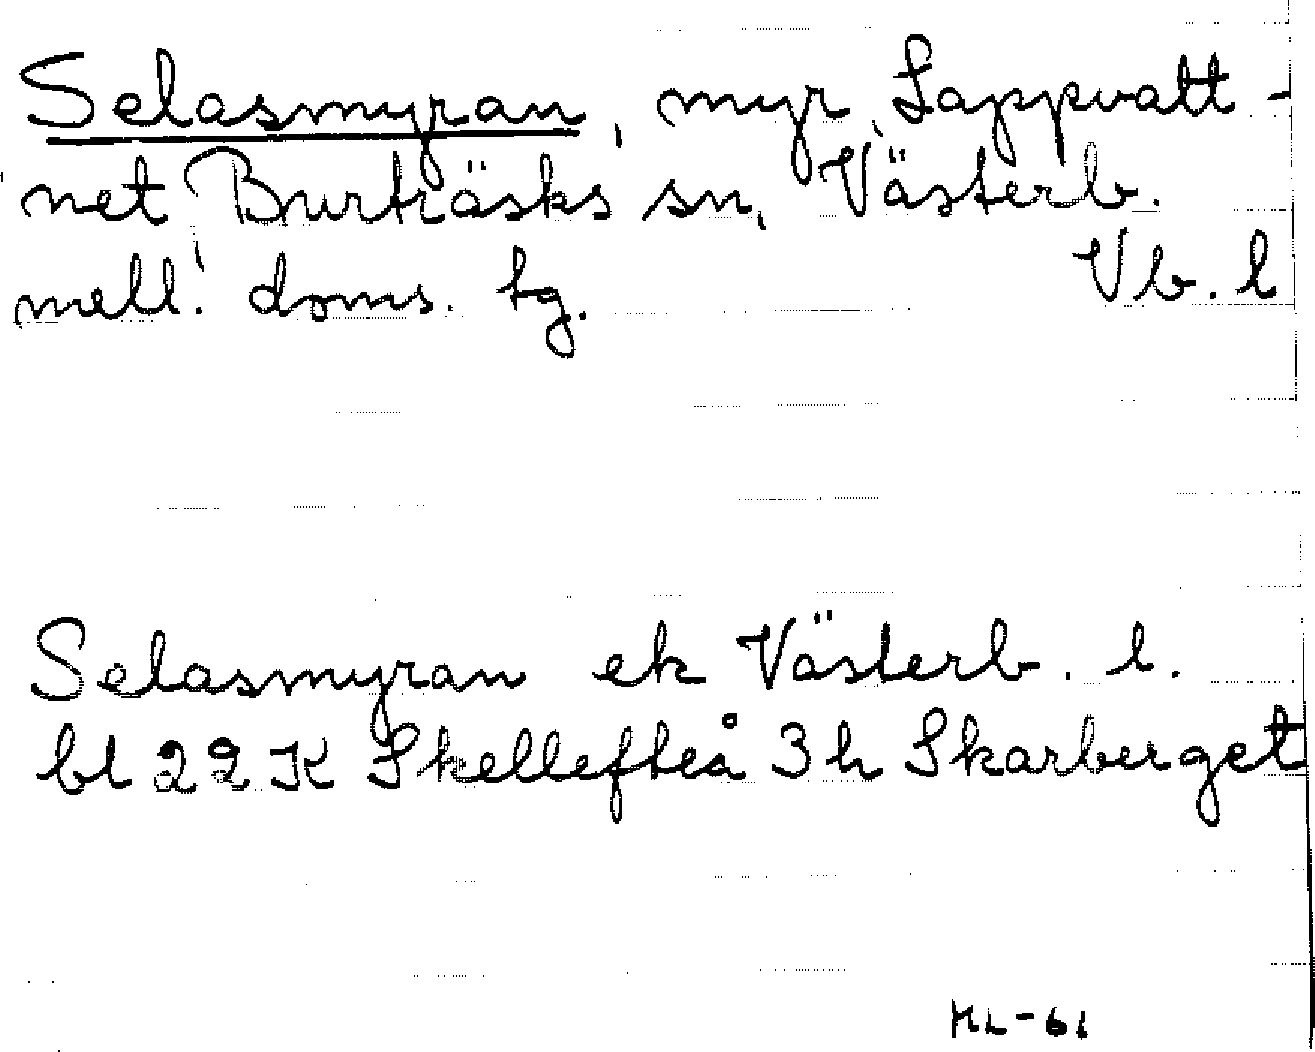 Selasmyran, myr, Lappvatt-
net Burträsks sn, Västerb.
mell. doms. tg. Vb. l
Selasmyran ek Västerb. l.
bl 22 K Skellefteå 3h Skarberget
ML-61